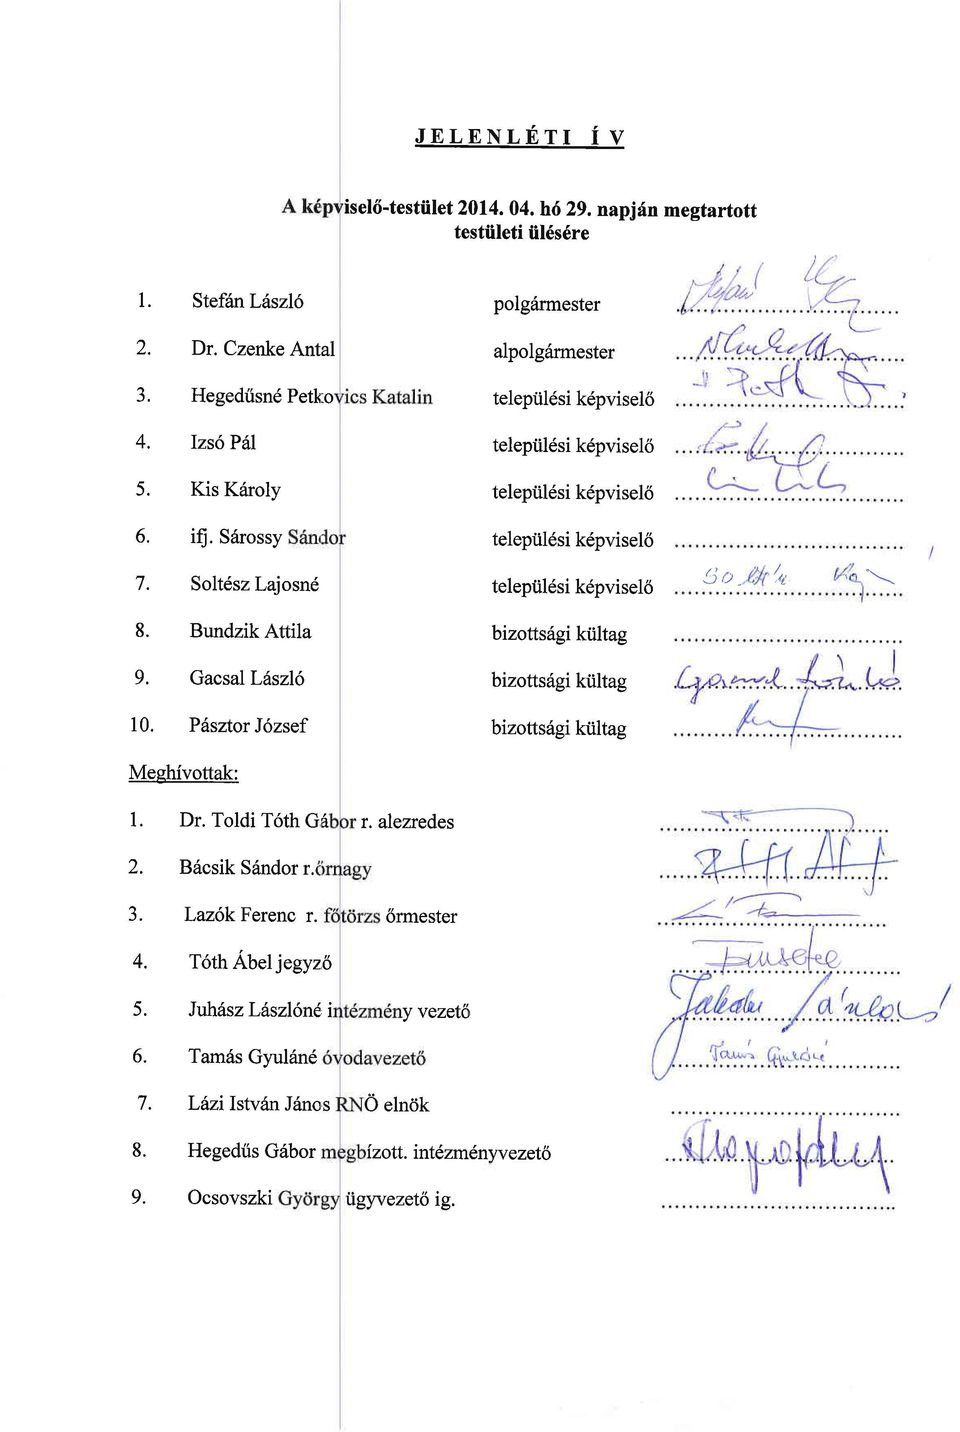 JELENLÉTI ÍV
A képviselő-testület 2014. 04. hó 29. napján megtartott
testületi ülésére
1. Stefán László polgármester
2. Dr. Czenke Antal alpolgármester
3. Hegedűsné Petkovics Katalin települési képviselő
4. Izsó Pál települési képviselő
5. Kis Károly települési képviselő
6. ifj. Sárossy Sándor települési képviselő
7. Soltész Lajosné települési képviselő
8. Bundzik Attila bizottsági kültag
9. Gacsal László bizottsági kültag
10. Pásztor József bizottsági kültag
Meghívottak:
1. Dr. Toldi Tóth Gábor r. alezredes
2. Bácsik Sándor r.őrnagy
3. Lazók Ferenc r. főtörzs őrmester
4. Tóth Ábel jegyző
5. Juhász Lászlóné intézmény vezető
6. Tamás Gyuláné óvodavezető Tamás Gyuláné
7. Lázi István János RNÖ elnök
8. Hegedűs Gábor megbízott. intézményvezető
9. Ocsovszki György ügyvezető ig.